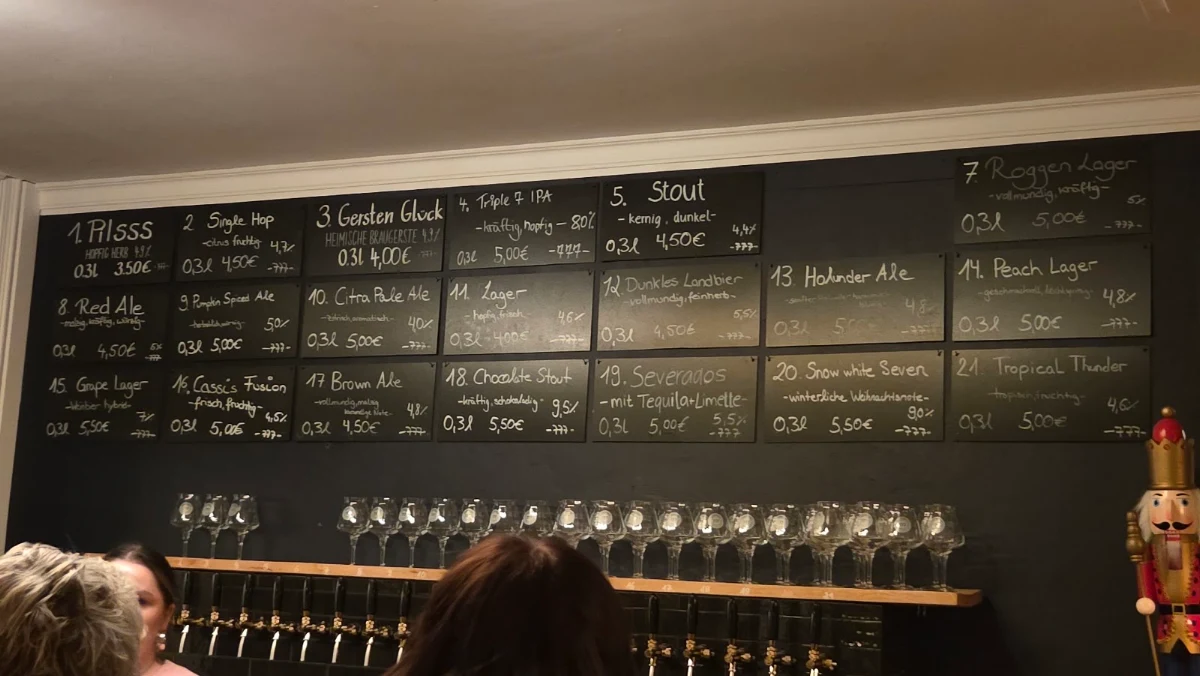 1. Pilsss
HOPFIG HERB 4.9%
0.3l 3.50€
2 Single Hop
-citrus fruchtig-
4,7%
0,3l 4,50€ -777-
3. Gersten Glück
HEIMISCHE BRAUGERSTE 4.9%
0.3l 4,00€ -777-
4. Triple 7 IPA
-kräftig, hopfig- 8,0%
0,3l 5,00€ -777-
5. Stout
-kernig, dunkel-
4,4%
0,3l 4,50€ -777-
7. Roggen Lager
-vollmundig, kräftig-
5%
0,3l 5,00€ -777-
8. Red Ale
-malzig, kräftig, würzig-
5%
0,3l 4,50€ -777-
9. Pumpkin Spiced Ale
5,0%
0,3l 5,00€ -777-
10. Citra Pale Ale
4,0%
0,3l 5,00€ -777-
11. Lager
-hopfig, frisch-
4,6%
0,3l 4,00€ -777-
12 Dunkles Landbier
-vollmundig, feinherb-
5,5%
0,3l 4,50€ -777-
13 Holunder Ale
4,8%
0,3l 5,00€ -777-
14. Peach Lager
4,8%
0,3l 5,00€ -777-
15. Grape Lager
-Weinbier hybrid-
7%
0,3l 5,50€ -777-
16. Cassi's Fusion
-frisch, fruchtig-
4,5%
0,3l 5,00€ -777-
17 Brown Ale
-vollmundig, malzig
4,8%
0,3l 4,50€ -777-
18. Chocolate Stout
-kräftig, schokoladig-
9,5%
0,3l 5,50€ -777-
19. Severados
-mit Tequila+Limette-
5,5%
0,3l 5,00€ -777
20. Snow white Seven
-winterliche Weihnachtsnote-
9,0%
0,3l 5,50€ -777-
21. Tropical Thunder
-tropisch, fruchtig-
4,6%
0,3l 5,00€ -777-